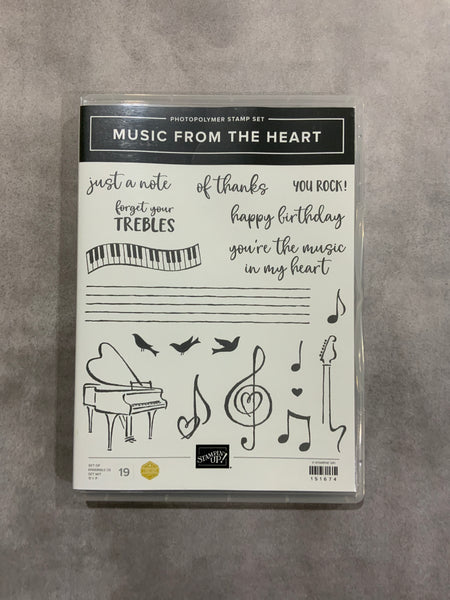 PHOTOPOLYMER STAMP SET
MUSIC FROM THE HEART
just a note
of thanks
YOU ROCK!
forget your
TREBLES
happy birthday
you're the music
in my heart
STAMPIN' UP!
SET OF
19
151674